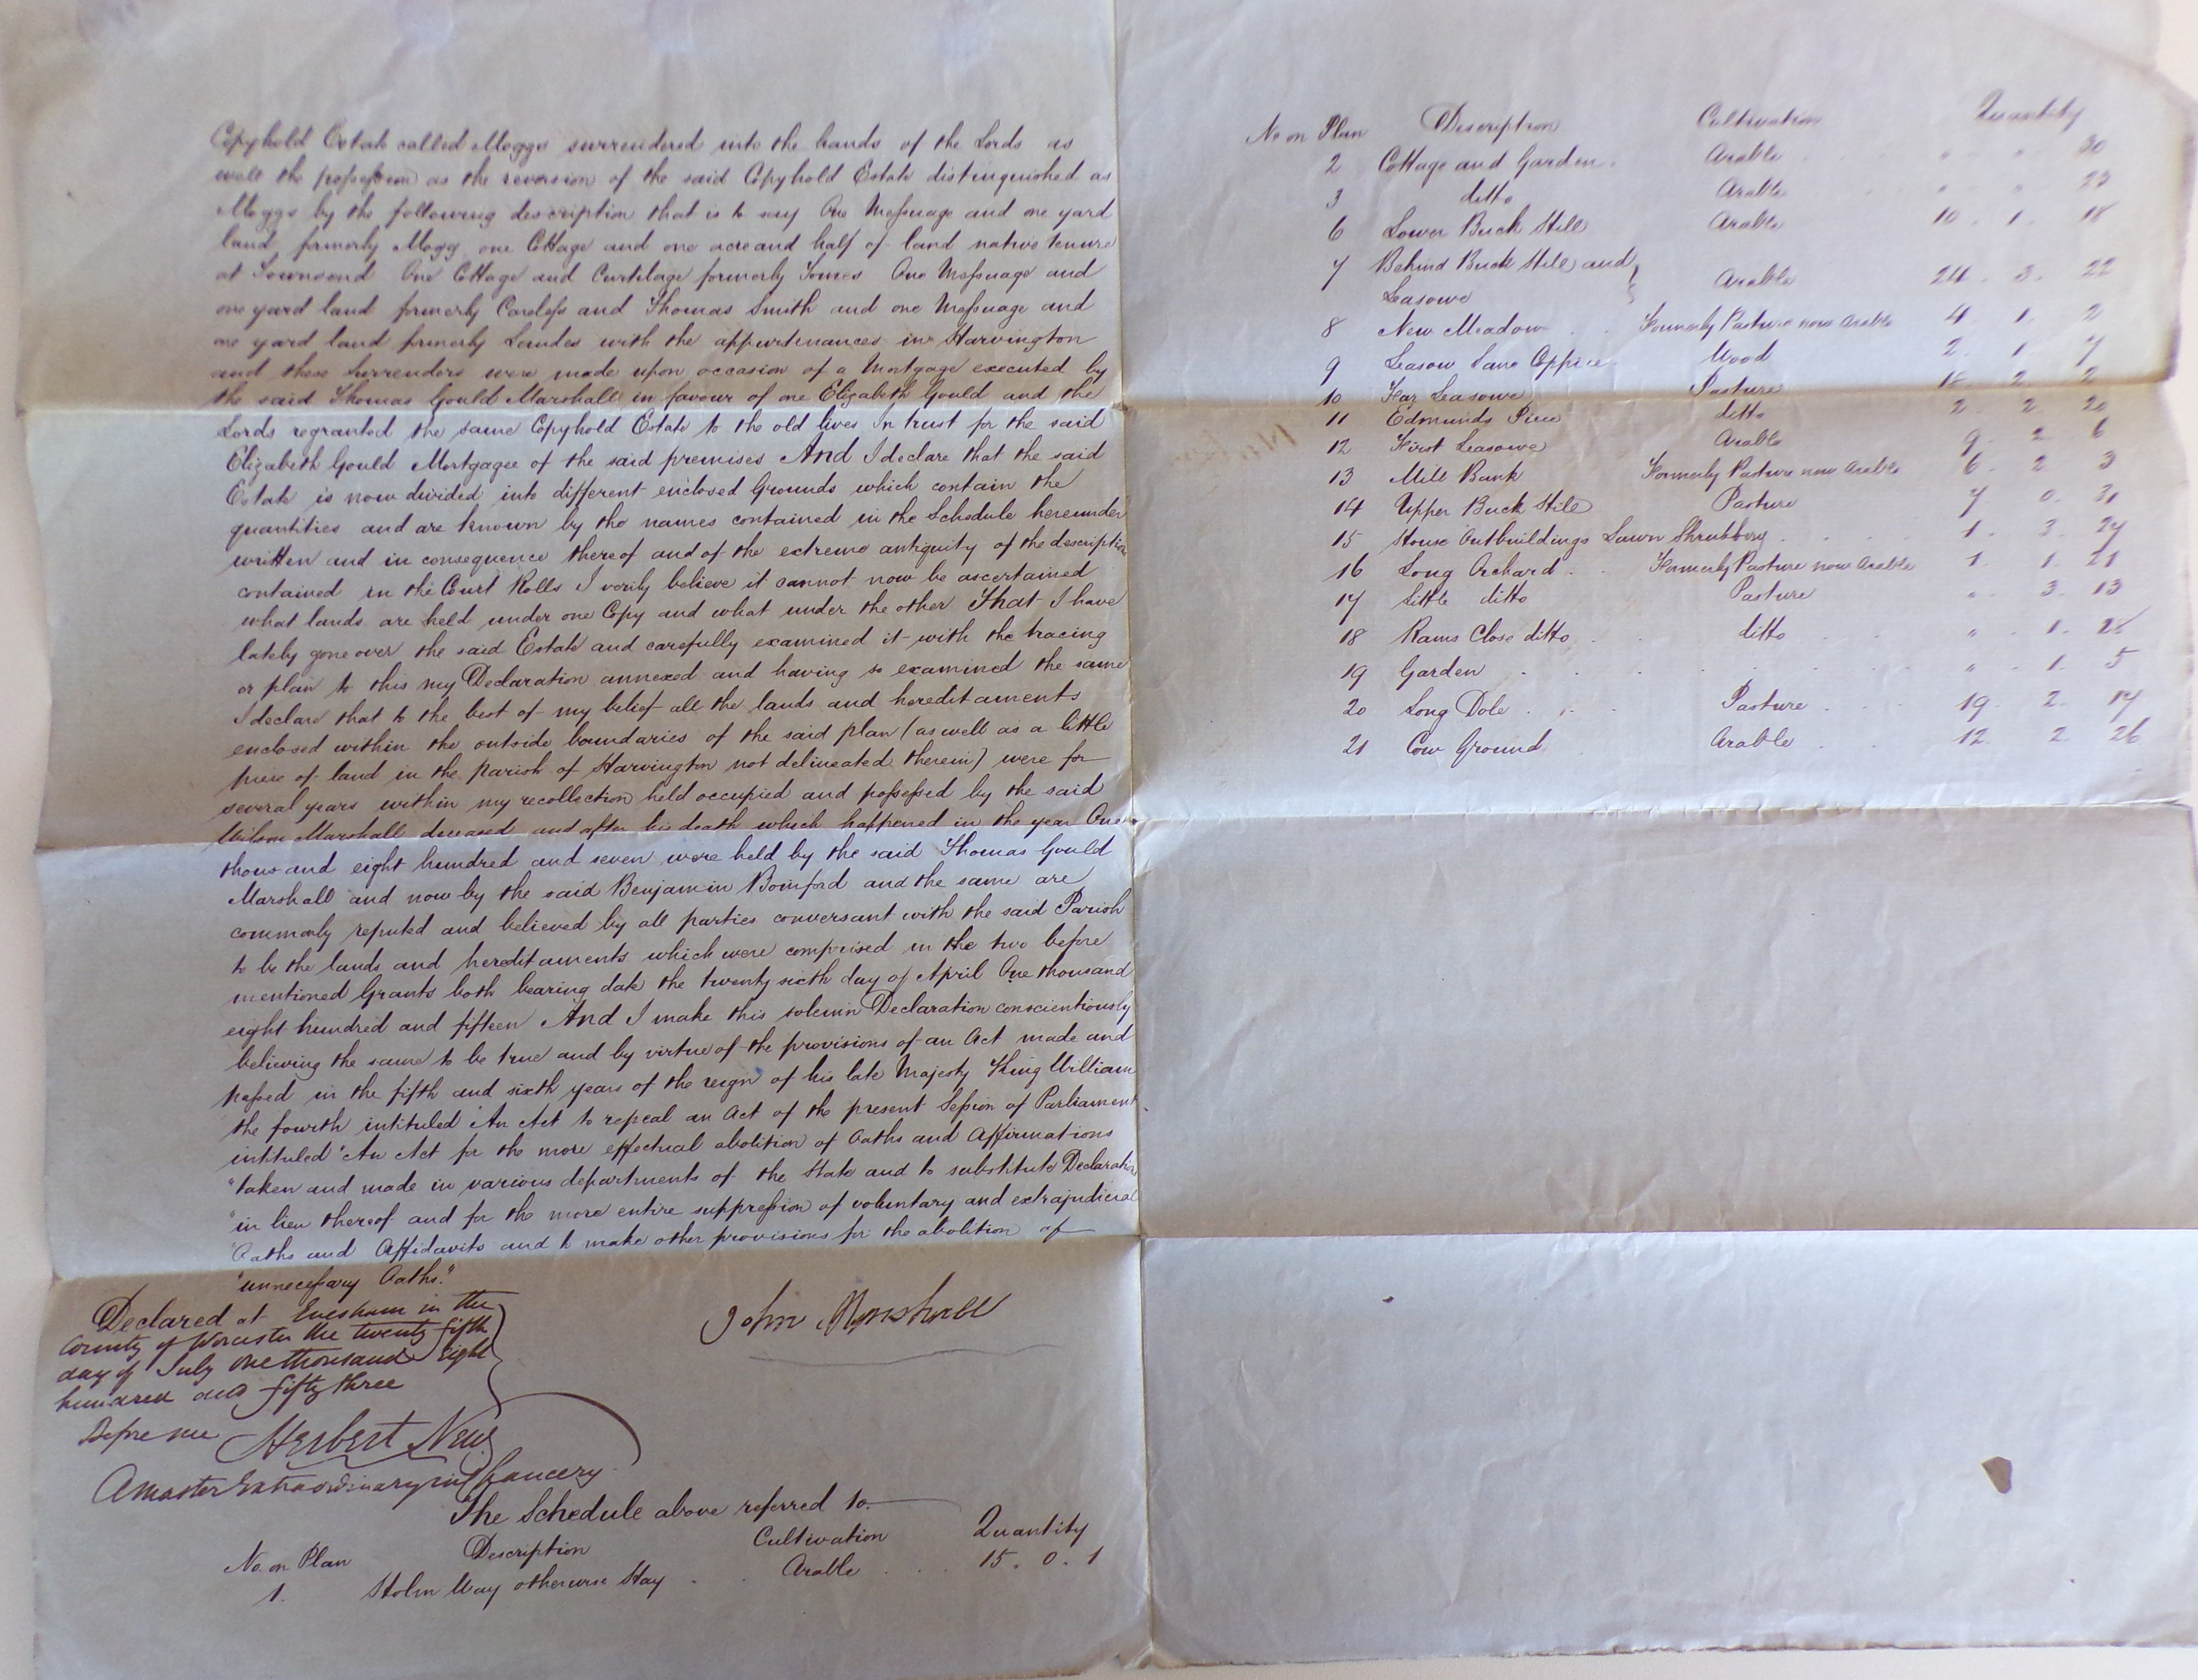 Copyhold Estate called Moggs surrendered into the hands of the Lords as
well the possession as the reversion of the said Copyhold Estate distinguished as
Moggs by the following description that is to say One Messuage and one yard
land formerly Mogg one Cottage and one acre and half of land native tenure
at Townsend One Cottage and Curtilage formerly Tomes One Messuage and
one yard land formerly Careless and Thomas Smith and one Messuage and
one yard land formerly Landes with the appurtenances in Harvington
and these Surrenders were made upon occasion of a Mortgage executed by
the said Thomas Gould Marshall in favour of one Elizabeth Gould and the
Lords regranted the same Copyhold Estate to the old lives In trust for the said
Elizabeth Gould Mortgagee of the said premises And I declare that the said
Estate is now divided into different enclosed Grounds which contain the
quantities and are known by the names contained in the Schedule hereunder
written and in consequence thereof and of the extreme antiquity of the description
contained in the Court Rolls I verily believe it cannot now be ascertained
what lands are held under one Copy and what under the other That I have
lately gone over the said Estate and carefully examined it with the tracing
or plan to this my Declaration annexed and having so examined the same
I declare that to the best of my belief all the lands and hereditaments
enclosed within the outside boundaries of the said plan (as well as a little
piece of land in the parish of Harvington not delineated therein) were for
several years within my recollection held occupied and possessed by the said
Wilson Marshall deceased and after his death which happened in the year One
thousand eight hundred and seven were held by the said Thomas Gould
Marshall and now by the said Benjamin Bomford and the same are
commonly reputed and believed by all parties conversant with the said Parish
to be the lands and hereditaments which were comprised in the two before
mentioned Grants both bearing date the twenty sixth day of April One thousand
eight hundred and fifteen And I make this solemn Declaration conscientiously
believing the same to be true and by virtue of the provisions of an Act made and
passed in the fifth and sixth years of the reign of his late Majesty King William
the fourth intituled "An Act to repeal an Act of the present Session of Parliament
intituled "An Act for the more effectual abolition of Oaths and Affirmations
"taken and made in various departments of the State and to substitute Declarations
"in lieu thereof and for the more entire suppression of voluntary and extrajudicial
"Oaths and Affidavits and to make other provisions for the abolition of
"unnecessary Oaths."
Declared at Evesham in the
County of Worcester the twenty fifth
day of July one thousand Eight
hundred and fifty three
Before me Herbert New
A master Extraordinary in Chancery
John Marshall
The Schedule above referred to
No. on Plan Description Cultivation Quantity
1. Holm Way otherwise Hay . . Arable . . . 15. 0. 1
No on Plan Description Cultivation Quantity
2 Cottage and Garden . Arable . . " . " . 30
3 ditto Arable . . " . " 23
6 Lower Buck Stile Arable 10 . 1 . 18
7 Behind Buck Stile and
Leasowe Arable 24 . 3 . 22
8 New Meadow . . Formerly Pasture now Arable 4 1 2
9 Leasow Lane Wood 2. 1 7
10 Far Leasowe Pasture 18 2 2
11 Edmunds Piece ditto 2 . 2 20
12 First Leasowe Arable 9 2 6
13 Mill Bank Formerly Pasture now Arable 6 . 2 3
14 Upper Buck Stile Pasture 7 0 . 31
15 House Outbuildings Lawn Shrubbery . . . 1 . 3 . 27
16 Long Orchard . . Formerly Pasture now Arable 1 . 1. 21
17 Little ditto Pasture " . 3. 13
18 Rams Close ditto . . ditto . . " . 1.
19 Garden . . . . . " . 1. 5
20 Long Dole . . . Pasture . . . 19 . 2. 17
21 Cow Ground Arable . . 12. 2. 26